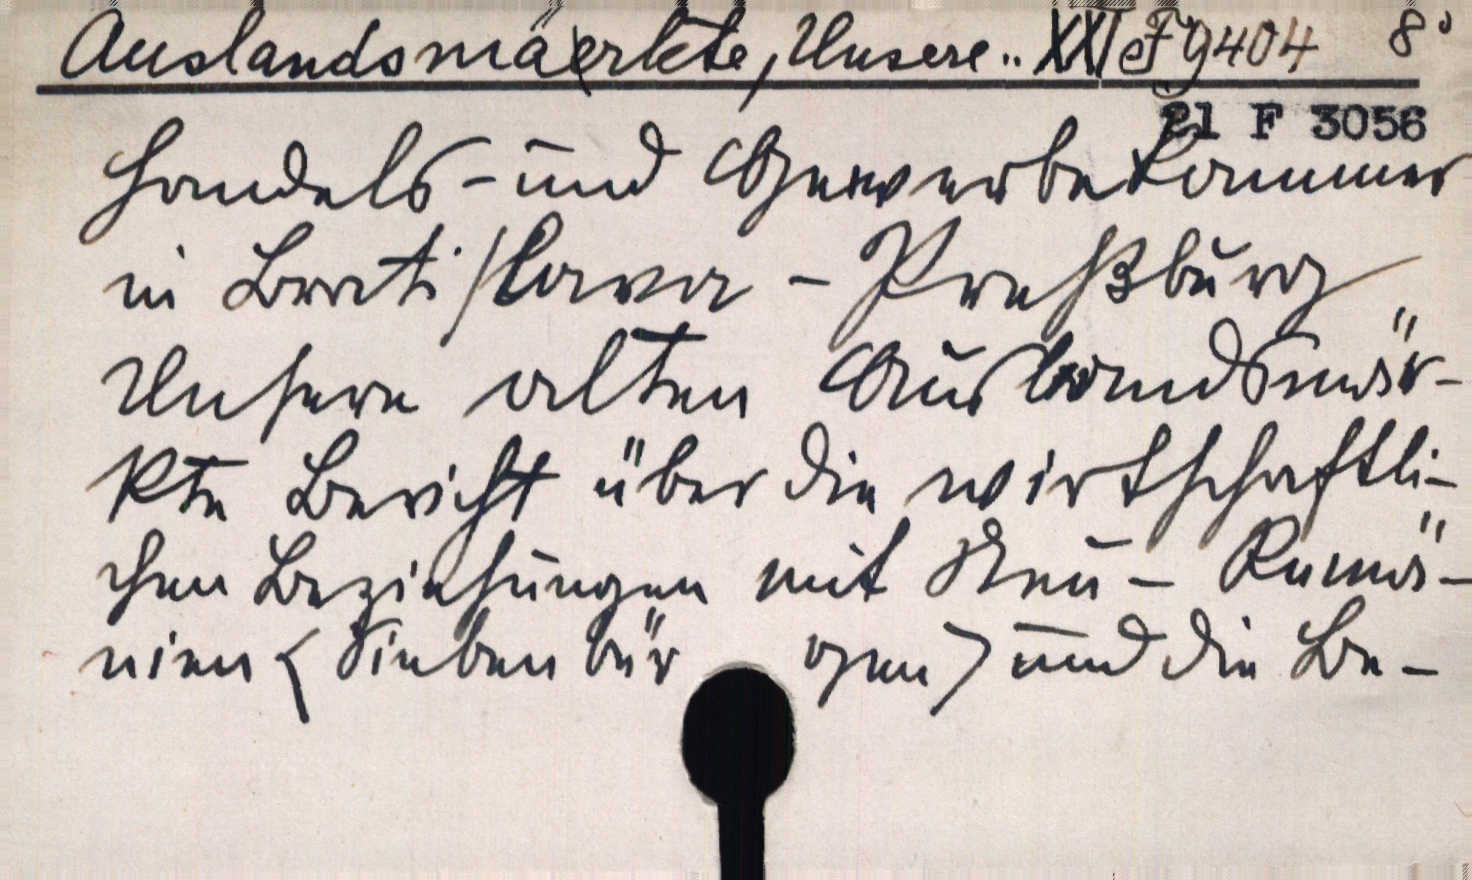 Auslandsmäerkte, Unsere.. XXI F 9404 8°
21 F 3056
Handels- und Gewerbekammer
in Bratislava - Preßburg
Unsere alten Auslandsmär-
kte Bericht über die wirtschaftli-
chen Beziehungen mit Neu- Rumä-
nien (Siebenbürgen) und die Be-